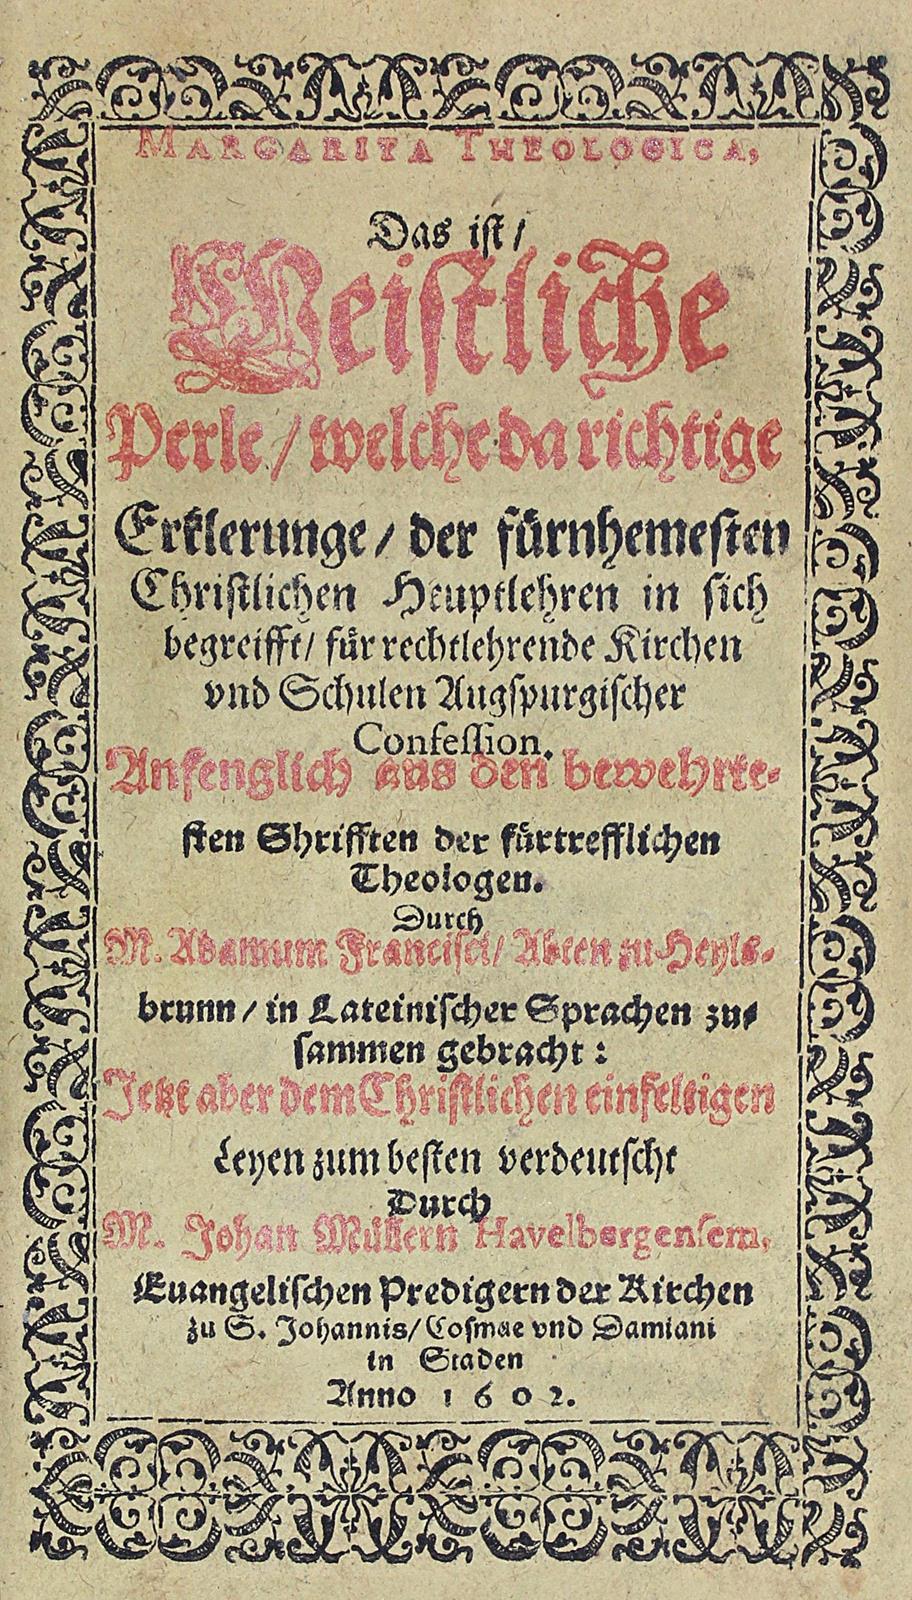 MARGARITA THEOLOGICA,
Das ist/
Geistliche
Perle/ welche da richtige
Erklerunge/ der fürnhemesten
Christlichen Heuptlehren in sich
begreifft/ für rechtlehrende Kirchen
vnd Schulen Augspurgischer
Confession.
Anfenglich aus den bewehrte-
sten Shrifften der fürtrefflichen
Theologen.
Durch
M. Adamum Francisci/ Abten zu Heyls-
brunn/ in Lateinischer Sprachen zu-
sammen gebracht:
Jetzt aber dem Christlichen einfeltigen
Leyen zum besten verdeutscht
Durch
M. Johan Müllern Havelbergensem,
Euangelischen Predigern der Kirchen
zu S. Johannis/ Cosmae vnd Damiani
in Staden
Anno 1602.